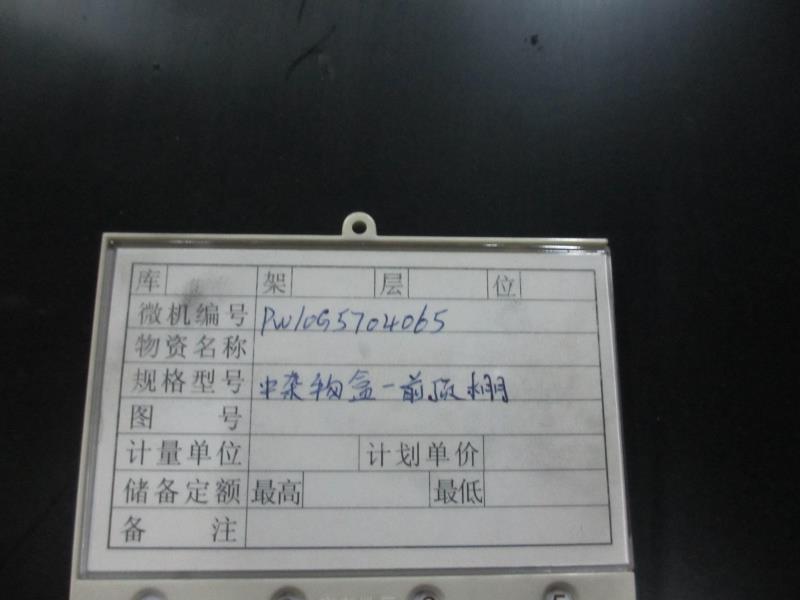 库 架 层 位
微机编号 PW10G5704065
物资名称
规格型号 中杂物盒-前顶棚
图 号
计量单位 计划单价
储备定额 最高 最低
备 注